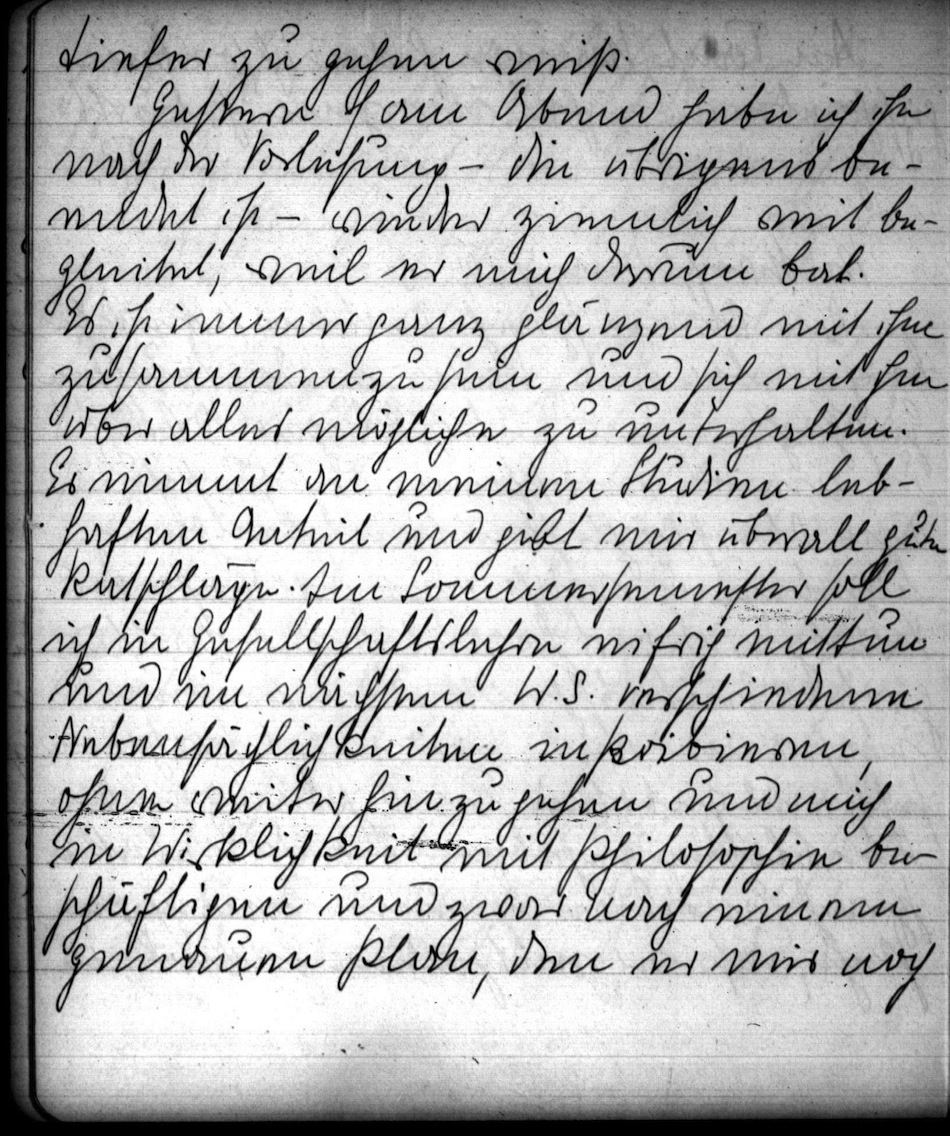 tiefer zu gehen weiß.
Gestern am Abend habe ich ihn
nach der Vorlesung – die übrigens be-
endet ist – wieder ziemlich weit be-
gleitet, weil er mich darum bat.
Es ist immer ganz glänzend mit ihm
zusammenzusein und sich mit ihm
über alles mögliche zu unterhalten.
Er nimmt an meinem Studium leb-
haften Anteil und gibt mir überall gute
Ratschläge. Im Sommersemester soll
ich in Gesellschaftslehre eifrig mittun
und im nächsten W.S. verschiedene
Nebensächlichkeiten inskribieren,
ohne weiter hinzugehen und mich
in Wirklichkeit mit Philosophie be-
schäftigen und zwar nach einem
genauen Plan, den er mir noch